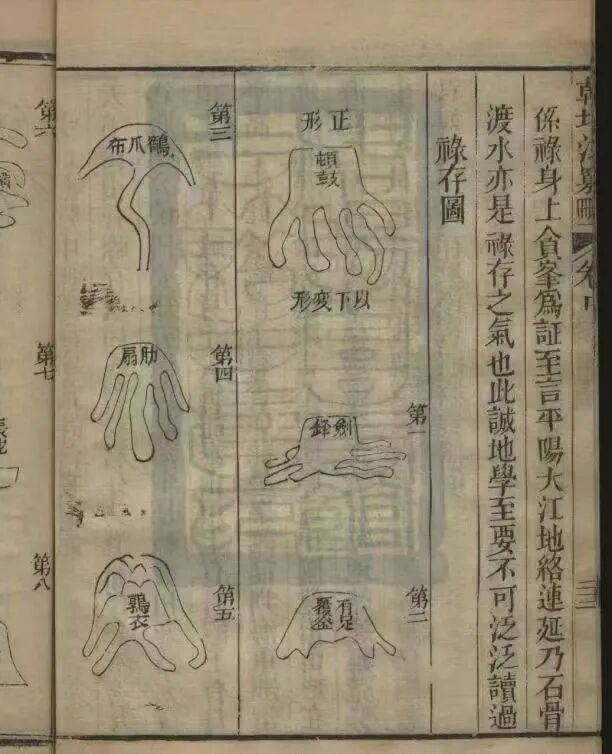 係祿身上貪峯爲証至言平陽大江地絡連延乃石骨
渡水亦是祿存之氣也此誠地學至要不可泛泛讀過
祿存圖
正形
頓鼓
以下变形
第一
劍鋒
第二
有足
覆釜
第三
鶴爪布
第四
肋扇
第五
鶉衣
第六
第七
第八